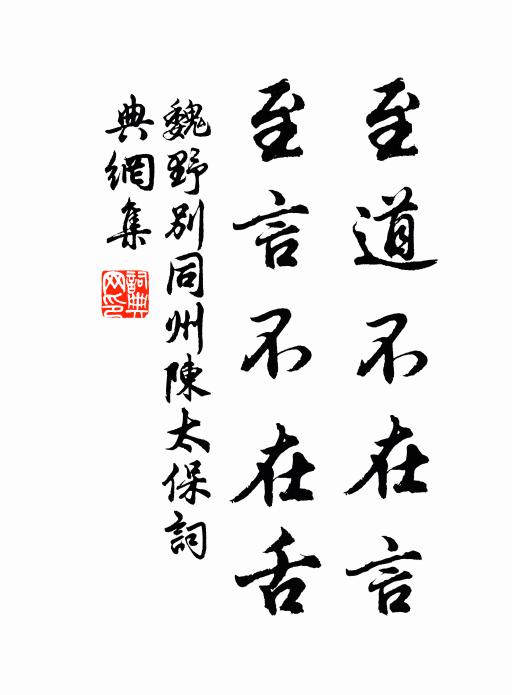 至道不在言
至言不在舌
魏野別同州陳太保詞
典網集
詞典網印